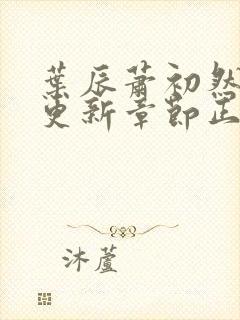 葉辰蕭初然
更新章節正
沐蘆